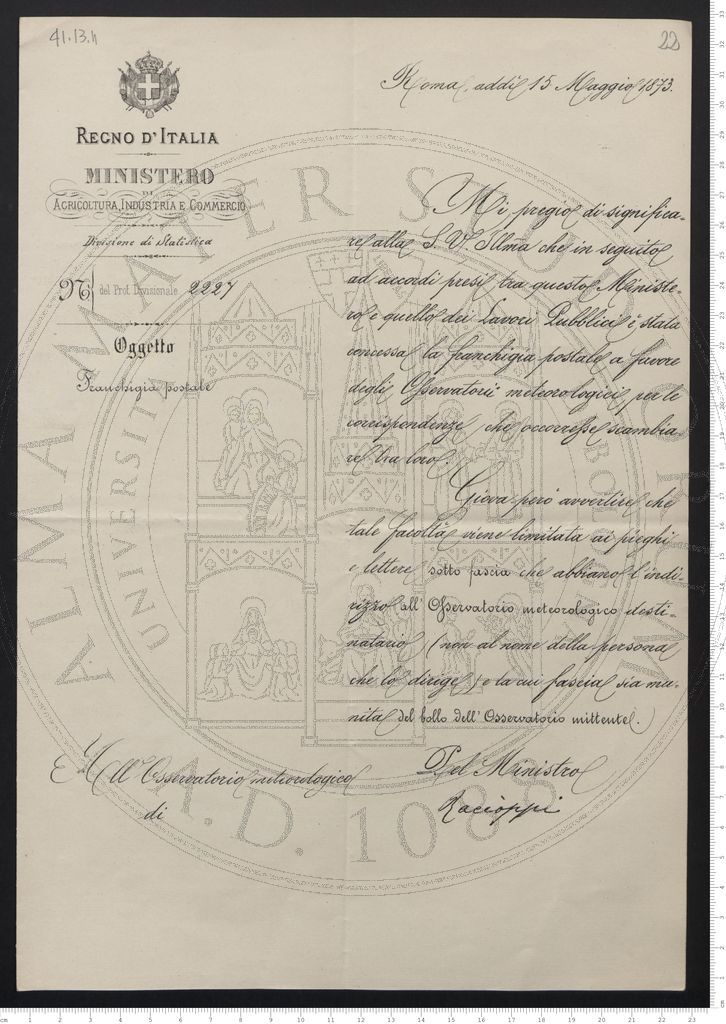 41.13.h
22
Roma, addì 15 Maggio 1873.
REGNO D'ITALIA
MINISTERO
DI
AGRICOLTURA, INDUSTRIA E COMMERCIO
Divisione di Statistica
N° del Prot. Divisionale 2227
Oggetto
Franchigia postale
Mi pregio di significa-
re alla S. V. Illma che in seguito
ad accordi presi tra questo Ministe-
ro e quello dei Lavori Pubblici è stata
concessa la franchigia postale a favore
degli Osservatorii meteorologici per le
corrispondenze che occorresse scambia
re tra loro.
Giova però avvertire che
tale facoltà viene limitata ai pieghi
e lettere sotto fascia che abbiano l'indi-
rizzo all'Osservatorio meteorologico desti-
natario (non al nome della persona
che lo dirige) e la cui fascia sia mu-
nita del bollo dell'Osservatorio mittente.
Pel Ministro
Racioppi
All'Osservatorio meteorologico
di
ALMA MATER STUDIORUM
A.D. 1088